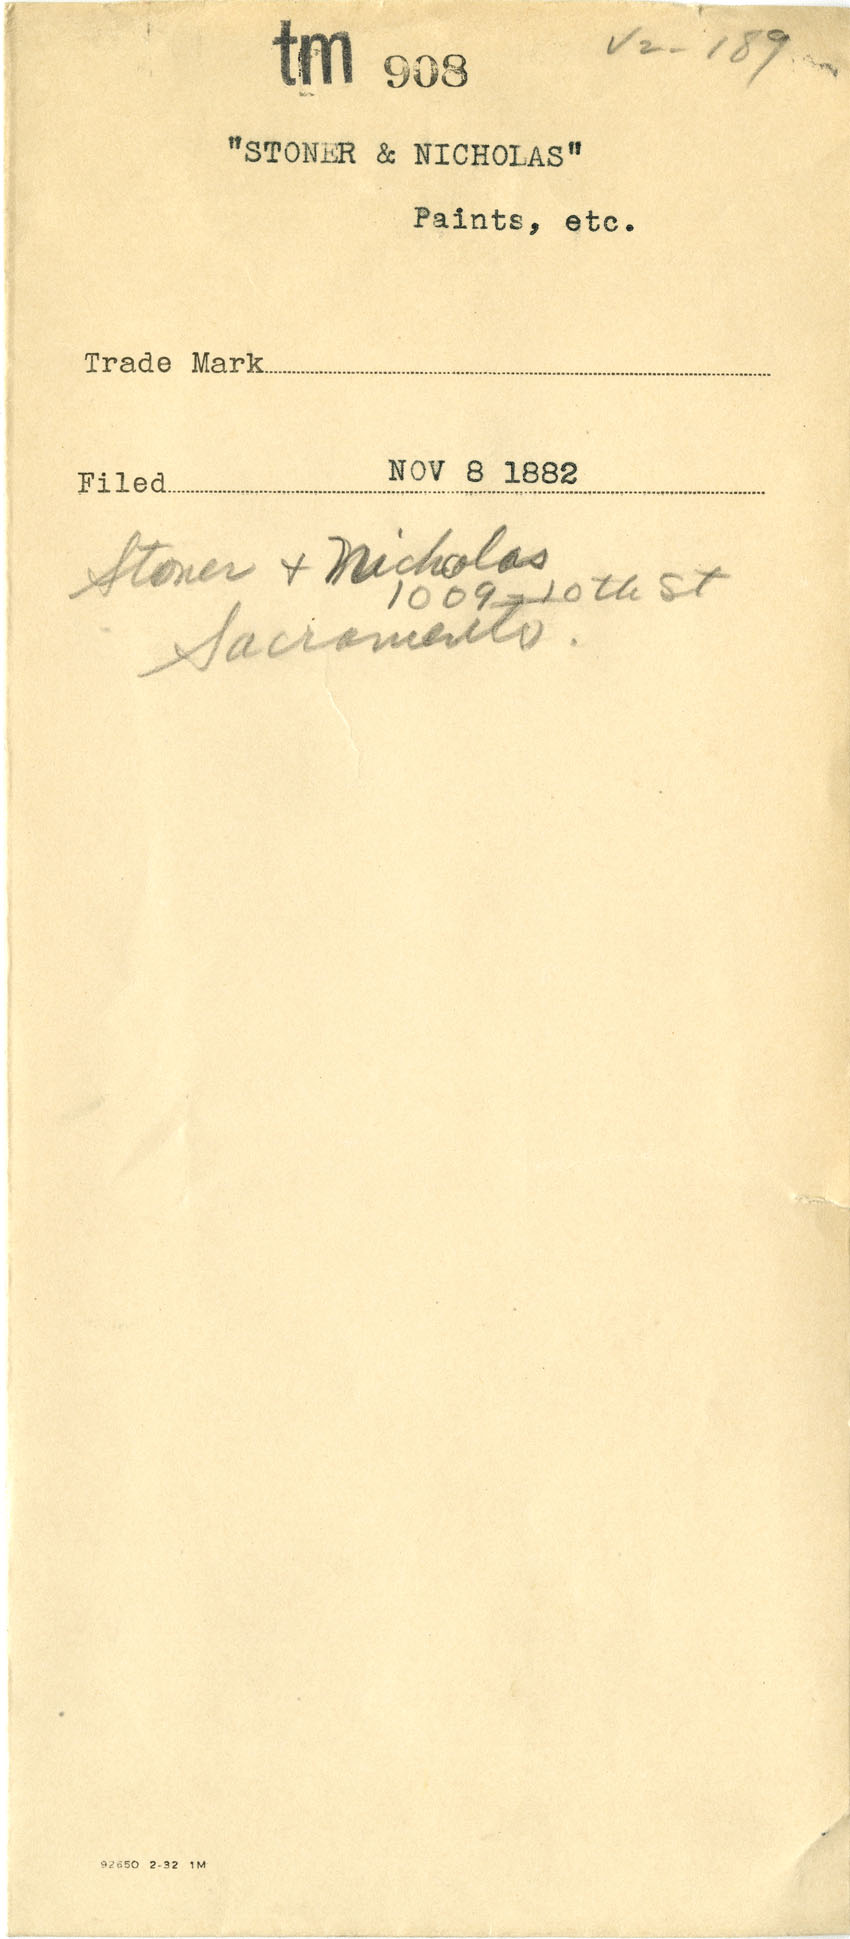 tm 908 V2-189
"STONER & NICHOLAS"
Paints, etc.
Trade Mark
Filed NOV 8 1882
Stoner + Nicholas
1009-10th St
Sacramento.
92650 2-32 1M